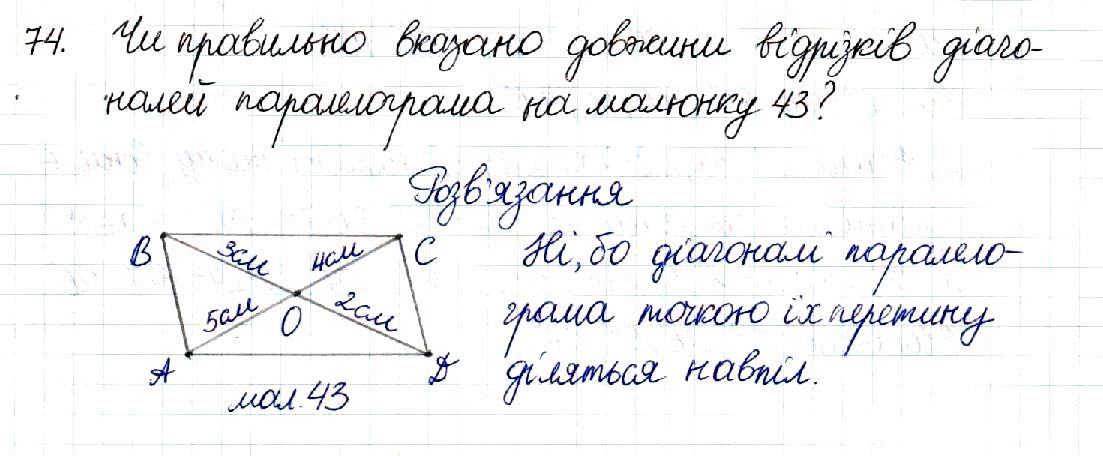 74. Чи правильно вказано довжини відрізків діаго-
налей паралелограма на малюнку 43?
Розв'язання
B 3см 4см C Ні, бо діагоналі паралело-
5см O 2см грама точкою їх перетину
A D діляться навпіл.
мал. 43